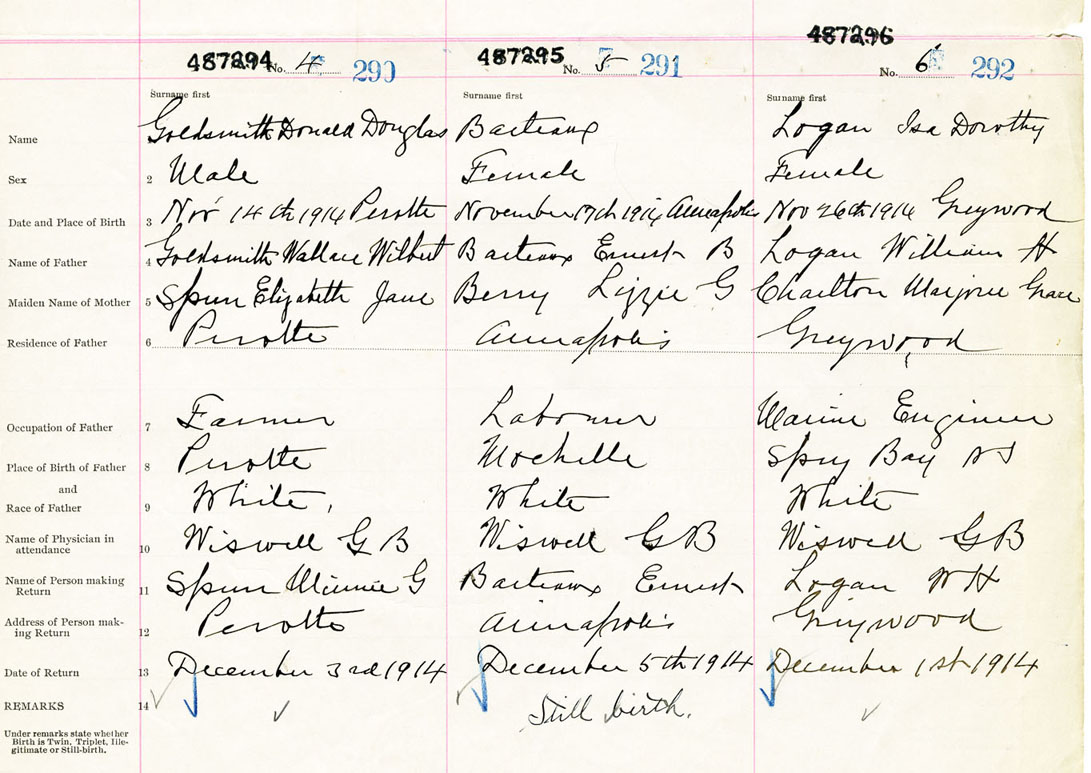 487294 487295 487296
No. 4 290 No. 5 291 No. 6 292
Surname first Surname first Surname first
Name Goldsmith Donald Douglas Barteaux Logan Isa Dorothy
Sex 2 Male Female Female
Date and Place of Birth 3 Nov 14th 1914 Perotte November 17th 1914 Annapolis Nov 26th 1914 Greywood
Name of Father 4 Goldsmith Wallace Wilbert Barteaux Ernest B Logan William H
Maiden Name of Mother 5 Spurr Elizabeth Jane Berry Lizzie G Charlton Marjorie Grace
Residence of Father 6 Perotte Annapolis Greywood
Occupation of Father 7 Farmer Labourer Marine Engineer
Place of Birth of Father 8 Perotte Mochelle Spry Bay NS
and
Race of Father 9 White, White White
Name of Physician in
attendance 10 Wiswell G B Wiswell G B Wiswell G B
Name of Person making
Return 11 Spurr Minnie G Barteaux Ernest Logan W H
Address of Person mak-
ing Return 12 Perotte Annapolis Greywood
Date of Return 13 December 3rd 1914 December 5th 1914 December 1st 1914
REMARKS 14 Still birth.
Under remarks state whether
Birth is Twin, Triplet, Ille-
gitimate or Still-birth.